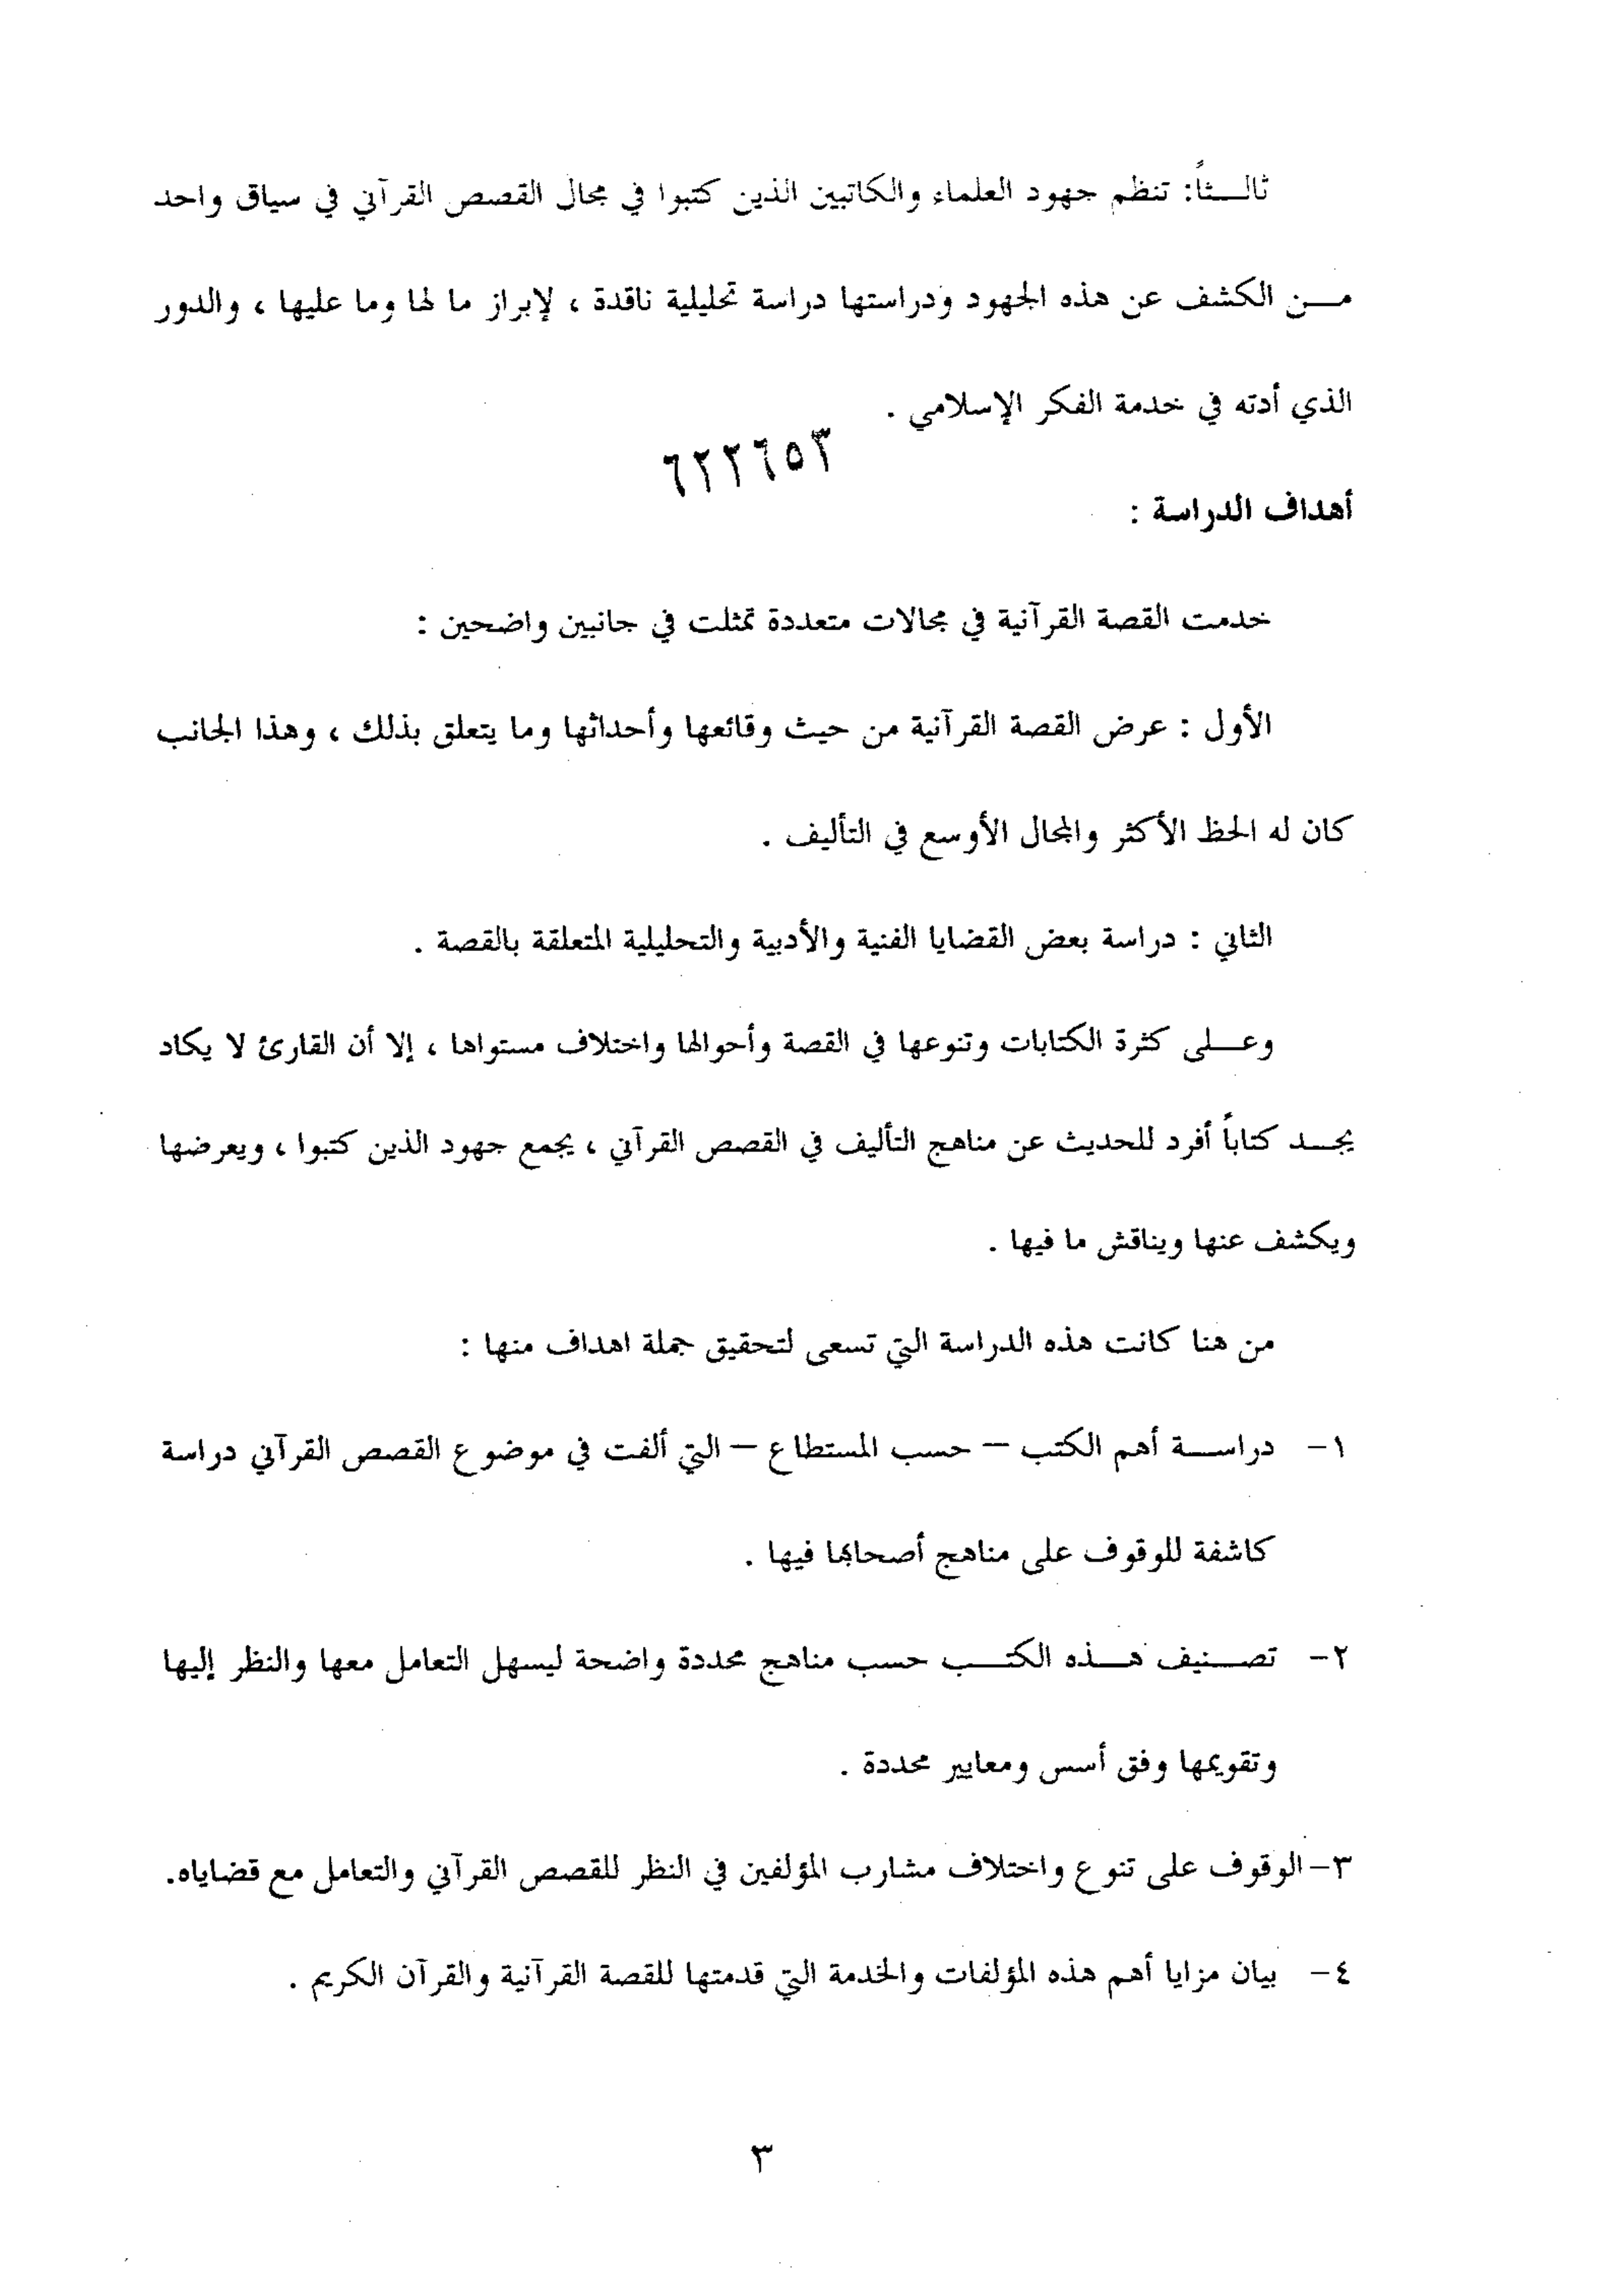 ثالثاً: تنظم جهود العلماء والكاتبين الذين كتبوا في مجال القصص القرآني في سياق واحد
من الكشف عن هذه الجهود ودراستها دراسة تحليلية ناقدة ، لإبراز ما لها وما عليها ، والدور
الذي أدته في خدمة الفكر الإسلامي .
٦٢٢٦٥٣
أهداف الدراسة :
خدمت القصة القرآنية في مجالات متعددة تمثلت في جانبين واضحين :
الأول : عرض القصة القرآنية من حيث وقائعها وأحداثها وما يتعلق بذلك ، وهذا الجانب
كان له الحظ الأكثر والمجال الأوسع في التأليف .
الثاني : دراسة بعض القضايا الفنية والأدبية والتحليلية المتعلقة بالقصة .
وعلى كثرة الكتابات وتنوعها في القصة وأحوالها واختلاف مستواها ، إلا أن القارئ لا يكاد
يجد كتاباً أفرد للحديث عن مناهج التأليف في القصص القرآني ، يجمع جهود الذين كتبوا ، ويعرضها
ويكشف عنها ويناقش ما فيها .
من هنا كانت هذه الدراسة التي تسعى لتحقيق جملة اهداف منها :
١- دراسة أهم الكتب – حسب المستطاع – التي ألفت في موضوع القصص القرآني دراسة
كاشفة للوقوف على مناهج أصحابها فيها .
٢- تصنيف هذه الكتب حسب مناهج محددة واضحة ليسهل التعامل معها والنظر إليها
وتقويمها وفق أسس ومعايير محددة .
٣- الوقوف على تنوع واختلاف مشارب المؤلفين في النظر للقصص القرآني والتعامل مع قضاياه.
٤- بيان مزايا أهم هذه المؤلفات والخدمة التي قدمتها للقصة القرآنية والقرآن الكريم .
٣